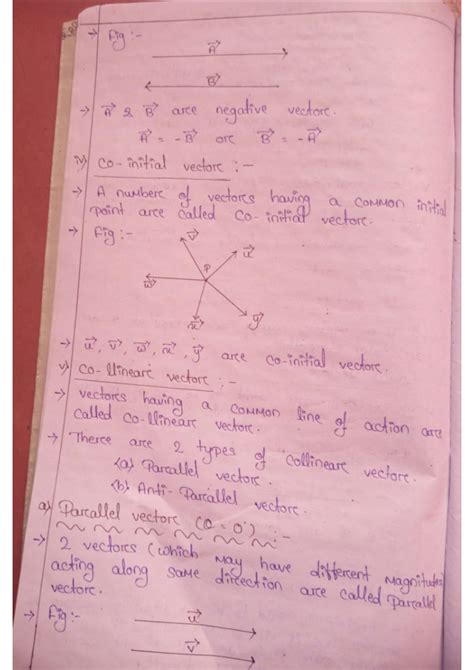 → Fig :-
A⃗
B⃗
→ A⃗ & B⃗ arce negative vectorc.
A⃗ = -B⃗ orc B⃗ = -A⃗
iv) co-initial vectorc :-
→ A numberc of vectorcs having a common initial
point arce called co-initial vectorc.
→ Fig :-
v⃗
u⃗
P
w⃗
x⃗
y⃗
→ u⃗, v⃗, w⃗, x⃗, y⃗ arce co-initial vectorc.
v) co-llinearc vectorc :-
→ vectorcs having a common line of action arce
called co-llinearc vectorc.
→ Therce arce 2 types of collinearc vectorc.
(a) Parcallel vectorc.
(b) Anti-Parcallel vectorc.
a) Parcallel vectorc (θ = 0°) :-
→ 2 vectorcs (which may have different magnitude)
acting along same dircection arce called Parcallel
vectorc.
→ Fig :-
u⃗
v⃗